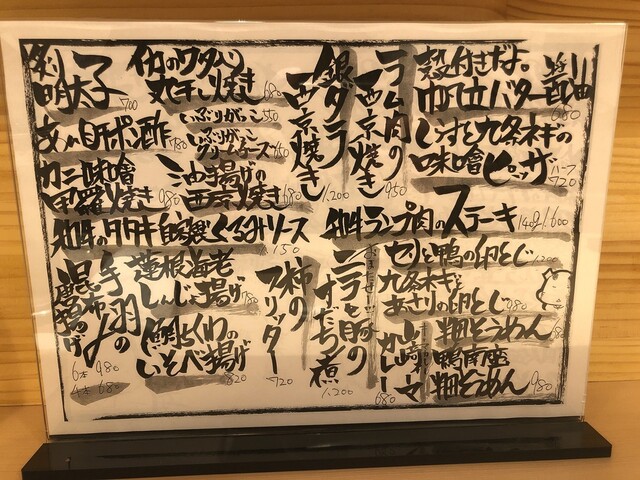 刺
明太子
700
あん肝ポン酢
780
カニ味噌
甲羅焼き
980
イカのワタ入
丸干し焼き
680
いぶりがっこ
550
いぶりがっこ
クリームチーズ
650
油揚げの
西京焼き
680
銀ダラ
西京焼き
1,200
ラム肉の
西京焼き
950
殻付きだよ。
帆立バター醤油
680
しらすと九条ネギの
味噌ピッザ
ハーフ
720
和牛のタタキ自家製くるみソース
和牛ランプ肉のステーキ
140g 1,600
手羽の
昆布〆
唐揚げ
6本 980
4本 680
蓮根海老
しんじょ揚げ
780
鯛ちくわの
いそべ揚げ
820
柿の
フリッター
720
ニラと豚の
すだち煮
1,200
セリと鴨の卵とじ
1,200
九条ネギと
あさりの卵とじ
980
山崎
カレー
680
粗そうめん
鴨南蛮
粗そうめん
980